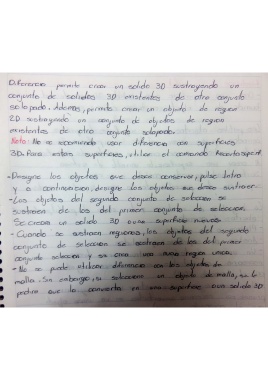 Diferencia permite crear un solido 3D sustrayendo un
conjunto de solidos 3D existentes de otro conjunto
solapado. Ademas, permite crear un objeto de region
2D sustrayendo un conjunto de objetos de region
existentes de otro conjunto solapado.
Nota: No se recomienda usar diferencia con superficies
3D. Para estas superficies, utilice el comando Recortarsuperf.
- Designe los objetos que desea conservar, pulse Intro
y a continuacion, designe los objetos que desea sustraer.
- Los objetos del segundo conjunto de seleccion se
sustraen de los del primer conjunto de seleccion.
Se crea un solido 3D o una superficie nuevos.
- Cuando se sustraen regiones, los objetos del segundo
conjunto de seleccion se sustraen de los del primer
conjunto seleccion y se crea una nueva region unica.
- No se puede utilizar diferencia con los objetos de
malla. Sin embargo, si selecciona un objeto de malla, se le
pedira que lo convierta en una superficie o un solido 3D